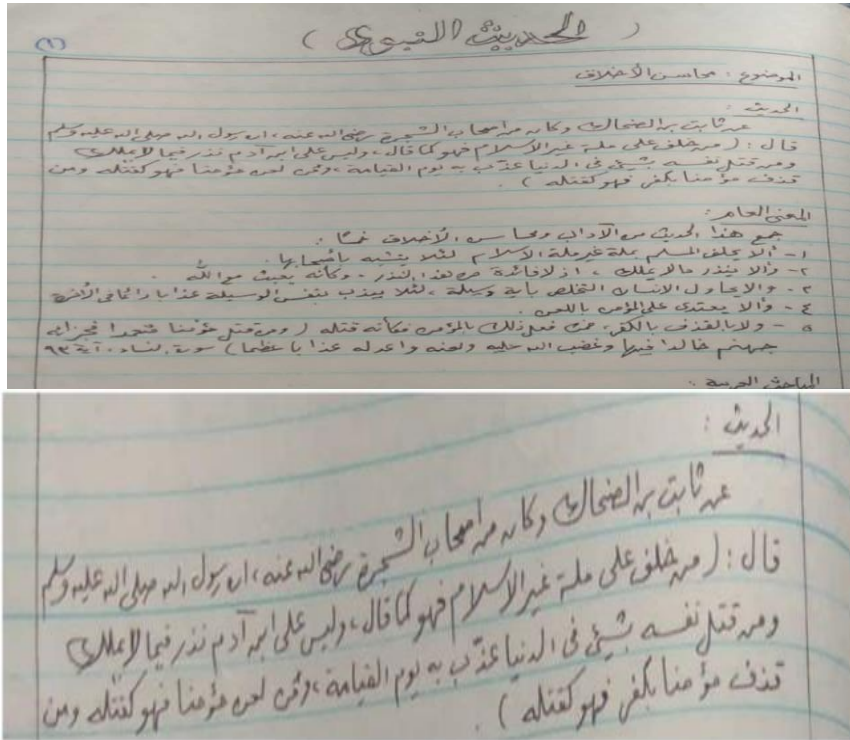 ( الحديث النبوي )
(١)
الموضوع : محاسن الأخلاق
الحديث :
عن ثابت بن الضحاك وكان من اصحاب الشجرة رضي الله عنه ، ان رسول الله صلى الله عليه وسلم
قال : ( من حلف على ملة غير الاسلام فهو كما قال ، وليس على ابن آدم نذر فيما لا يملك
ومن قتل نفسه بشيئ في الدنيا عذّب به يوم القيامة ، ومن لعن مؤمنا فهو كقتله ومن
قذف مؤمنا بكفر فهو كقتله ) .
المعنى العام :
جمع هذا الحديث من الآداب ومحاسن الأخلاق خمسًا :
١- ألا يحلف المسلم بملة غير ملة الاسلام لئلا يتشبه بأصحابها .
٢- وألا ينذر مالا يملك ، اذ لا فائدة من هذا النذر . وكأنه يعبث مع الله .
٣- والا يحاول الانسان التخلص بأية وسيلة ، لئلا يعذب بنفس الوسيلة عذابا دائما في الأخرة
٤- وألا يعتدى على المؤمن باللعن .
٥- ولا بالقذف بالكفر ، فمن فعل ذلك بالمؤمن فكأنه قتله ( ومن قتل مؤمنا متعمدا فجزاؤه
جهنم خالدا فيها وغضب الله عليه ولعنه واعد له عذابا عظيما ) سورة النساء . آية ٩٣
المباحث العربية :
الحديث :
عن ثابت بن الضحاك وكان من اصحاب الشجرة رضي الله عنه ، ان رسول الله صلى الله عليه وسلم
قال : ( من حلف على ملة غير الاسلام فهو كما قال ، وليس على ابن آدم نذر فيما لا يملك
ومن قتل نفسه بشيئ في الدنيا عذّب به يوم القيامة ، ومن لعن مؤمنا فهو كقتله ومن
قذف مؤمنا بكفر فهو كقتله ) .